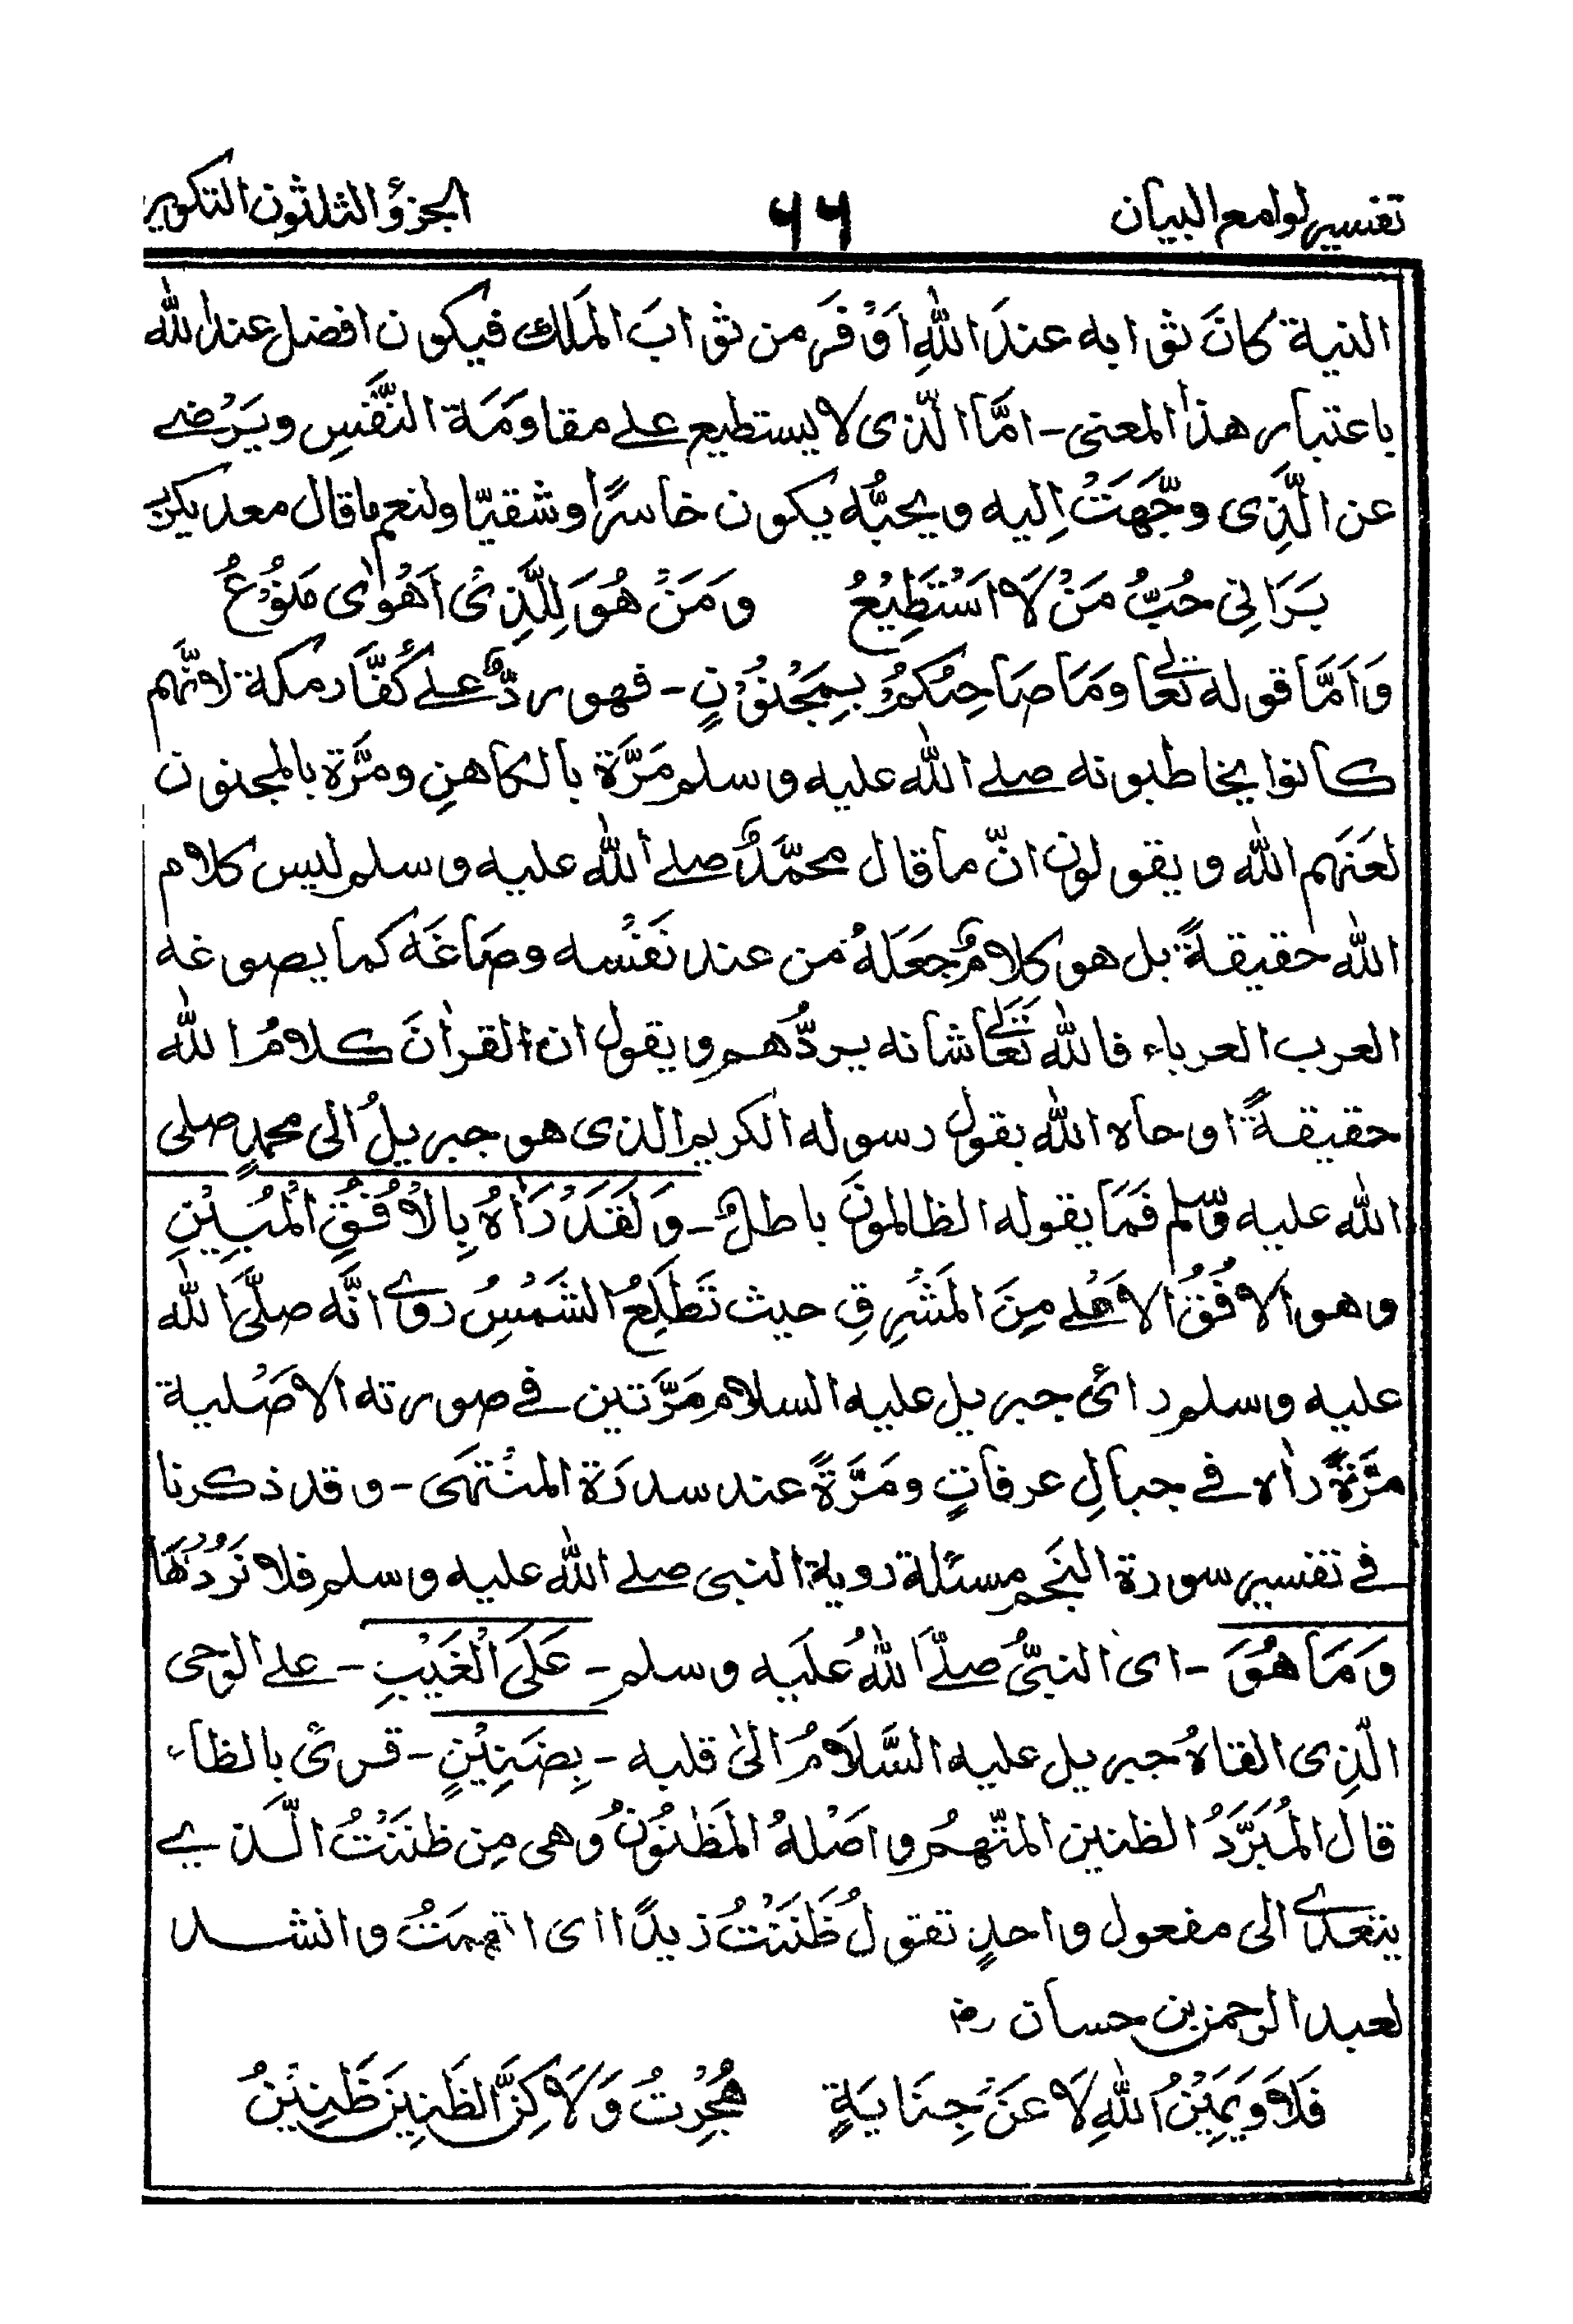 تفسیر لوامع البیان ٦٦ الجزؤ الثلثون التکویر
النیة کانَ ثوابه عندَ اللّٰهِ اَوْفَر من ثوابَ المَلَك فیکون افضل عند اللّٰه
باعتبار هذٰا المعنی - امَّا الّذی لا یستطیع علے مقاوَمَة النَّفْسِ ویَرْضے
عن الَّذِی وجَّهَتْ اِلیه ویحبُّه یکون خاسرًا وشقیّا ولنعم ما قال معدیکرب
بَرَانِی حُبُّ مَنْ لَا اَسْتَطِیْعُ ومَنْ هُوَ لِلَّذِیْ اَهْوٰی مَنُوْعُ
وَاَمَّا قوله تَعَالٰے ومَا صَاحِبُکُمْ بِمَجْنُوْنٍ - فهو ردٌّ علے کُفَّار مکة لانَّهم
کانوا یخاطبونه صلے اللّٰه علیه وسلم مَرَّة بالکاهنِ ومرَّة بالمجنون
لعَنَهم اللّٰه ویقولون انّ ما قال محمَّدٌ صلے اللّٰه علیه وسلم لیس کلام
اللّٰه حقیقةً بل هو کلامٌ جَعَلَهُ من عند نَفْسه وصَاغَه کما یصوغه
العرب العرباء فاللّٰه تَعَالٰے شانه یردُّهم ویقول ان القراٰنَ کلامُ اللّٰه
حقیقةً اوحاه اللّٰه بقول رسوله الکریم الذی هو جبریلُ الی محمدٍ صلی
اللّٰه علیه وسّلم فَمَا یقوله الظالمونَ باطلٌ - وَلَقَدْ رَاٰهُ بِالْاُفُقِ الْمُبِیْنِ
وهو الافُقُ الاعْلے مِنَ المَشْرِقِ حیث تَطْلِعُ الشَمْسُ روے انَّه صلَّی اللّٰه
علیه وسلم رائی جبریل علیه السلام مَرَّتین فے صورته الاصْلیة
مَرَّةً راٰه فے جبالِ عرفاتٍ ومَرَّةً عند سدرَة المنْتهَی - وقد ذکرنا
فے تفسیر سورة النَجْم مسئلة رویة النبی صلے اللّٰه علیه وسلم فلا نَرُدُّهَا
وَمَا هُوَ - ای النبیُّ صلّے اللّٰهُ عَلَیه وسلم - عَلَی الْغَیْبِ - علے الوحی
الّذِی القاهُ جبریل علیه السَّلَامُ الیٰ قلبه - بِضَنِیْنٍ - قرئ بالظاء
قال المُبَرَّدُ الظنین المتّهمُ واصْلهُ المَظْنُوْنُ وهی مِن ظنَنْتُ الَّذے
یتعدّے الی مفعول واحدٍ تقولُ ظَنَنْتُ زیدًا ای اتهمتُ وانشد
لعبد الرحمن بن حسان رض
فَلَا وَیَمِیْنُ اللّٰهِ لَا عَنْ جِنَایَةٍ هُجِرْتُ وَلَاکِنَّ الظَنِیْنَ ظَنِیْنُ